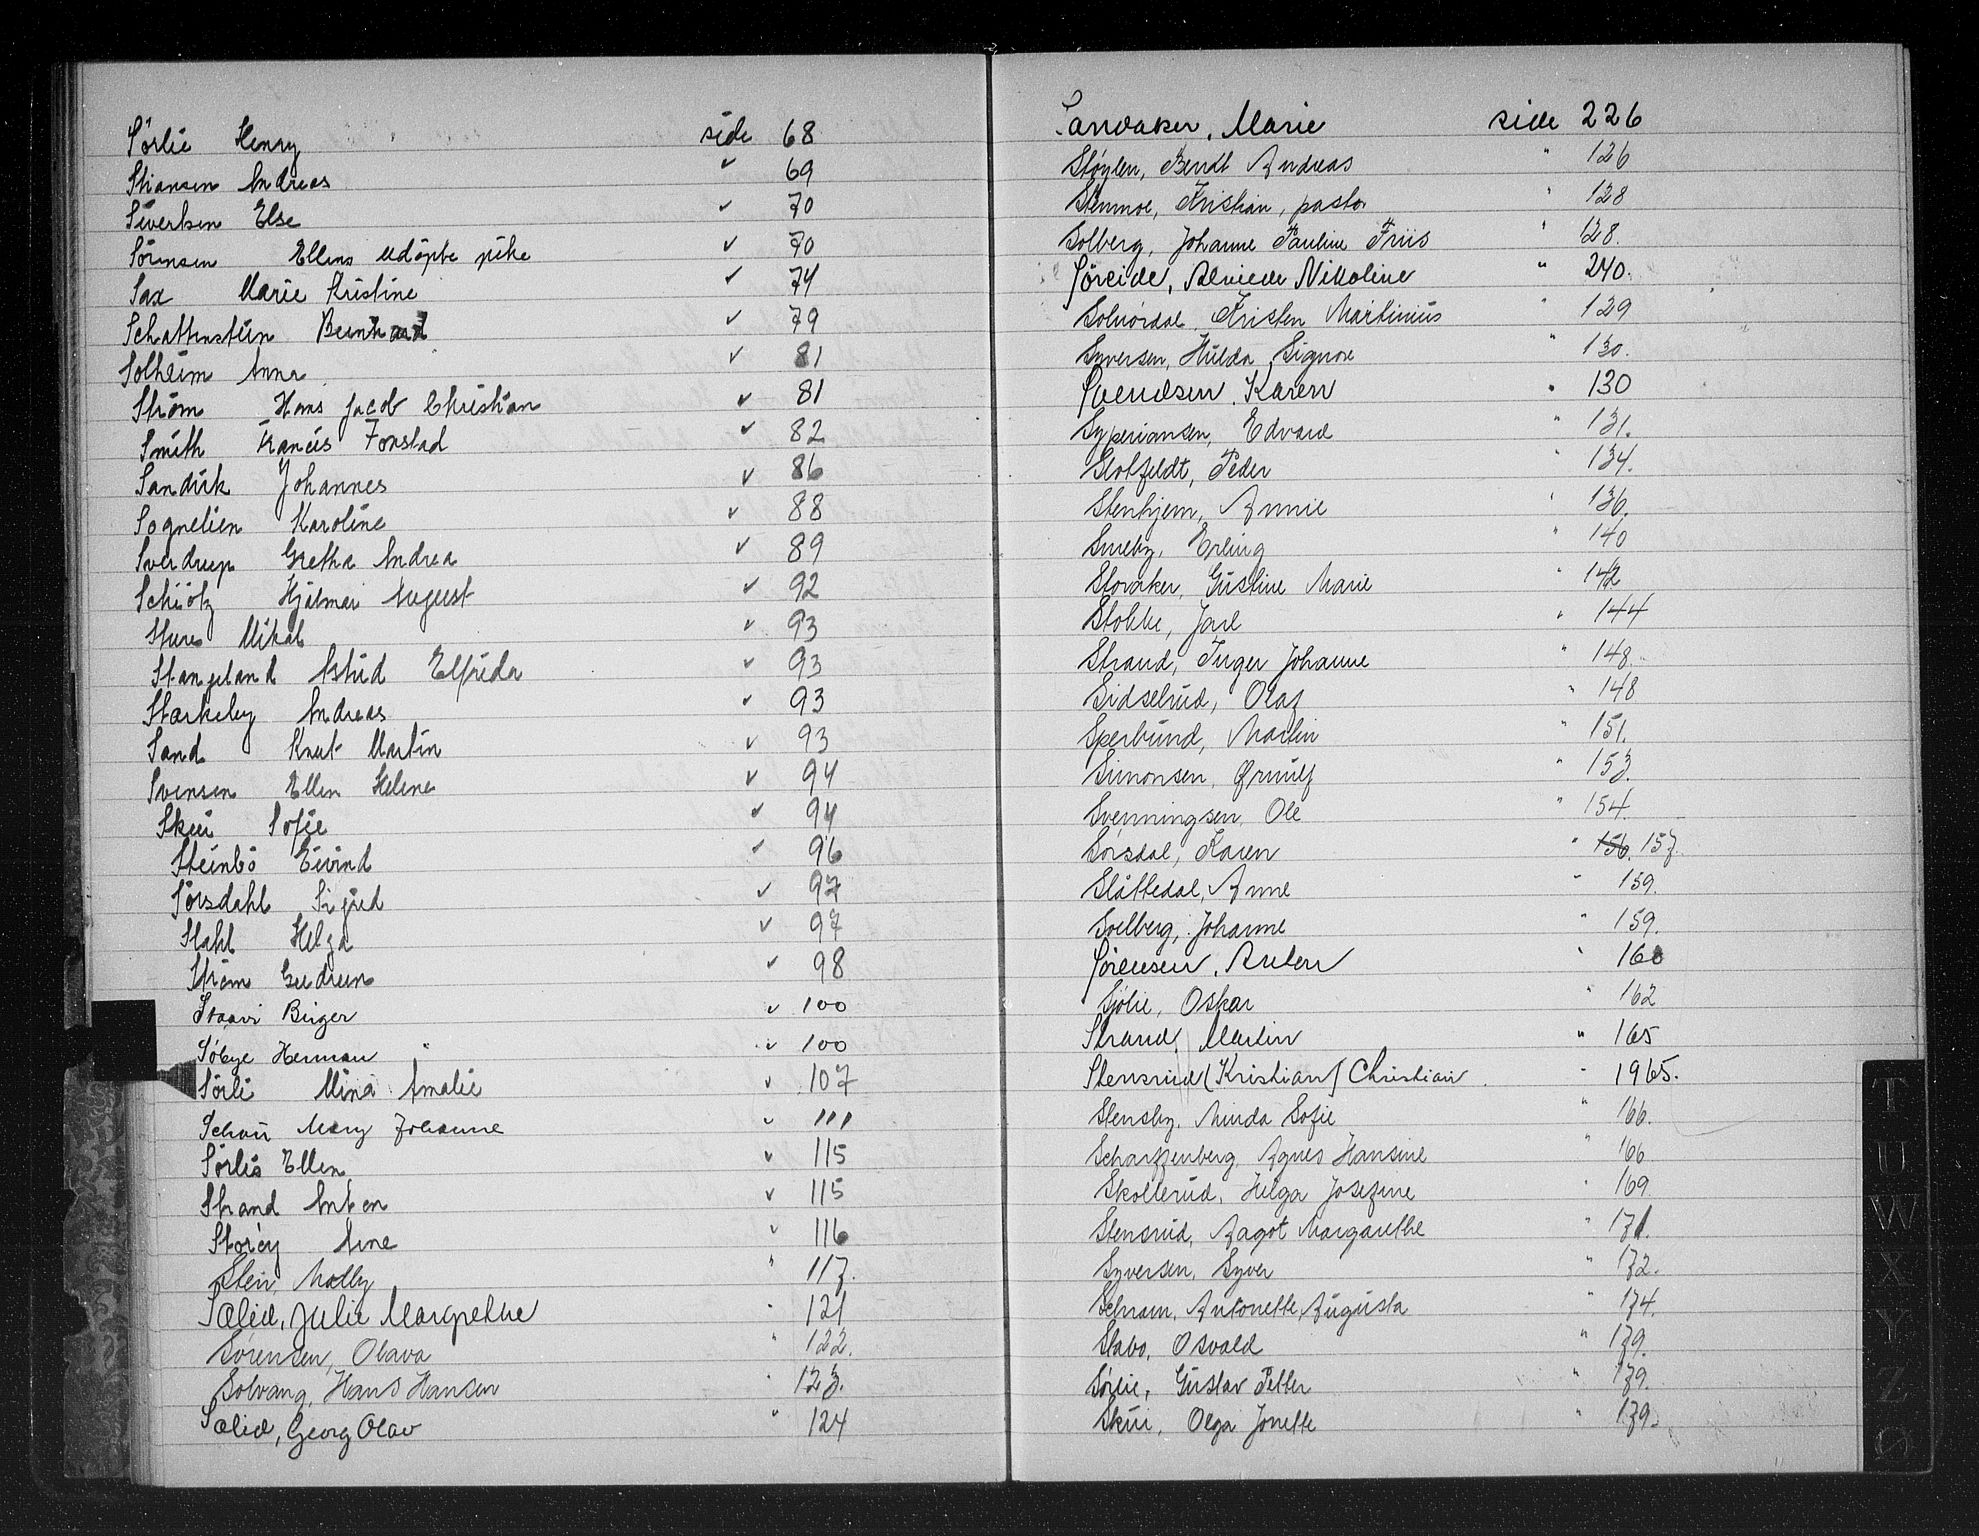 Sörlie Henry side 68
Stiansen Andreas " 69
Sivertsen Else " 70
Sörensen Ellens udöpte pike " 70
Sax Marie Kristine " 74
Schattenstein Bernhard " 79
Solheim Anna " 81
Ström Hans Jacob Christian " 81
Smith Francis Fonstad " 82
Sandvik Johannes " 86
Sognelien Karoline " 88
Sverdrup Grethe Andrea " 89
Schiötz Hjalmar August " 92
Sture Mikal " 93
Stangeland Astrid Elfrida " 93
Starkeby Andreas " 93
Sand Knut Martin " 93
Svensen Ellen Helene " 94
Skui Sofie " 94
Steinbö Eivind " 96
Sörsdahl Sigrid " 97
Stahl Helga " 97
Ström Gudrun " 98
Staavi Birger " 100
Söbye Herman " 100
Sörli Mina Amalie " 107
Schou Mary Johanne " 111
Sörlie Ellen " 115
Strand Anton " 115
Storöy Arne " 116
Stein, Molly " 117.
Sælid, Julie Margrethe " 121
Sörensen, Olava " 122.
Solvang, Hans Hansen " 123.
Sælid, Georg Olav " 124
Sandaker, Marie side 226
Støylen, Bendt Andreas " 126
Stenmoe, Kristian, pastor " 128
Solberg, Johanne Pauline Friis " 128.
Söreide, Nikoline " 240.
Solnørdal, Kristen Martinius " 129
Syversen, Hulda Signora " 130.
Svendsen, Karen " 130
Syperiansen, Edvard " 131.
Slotfeldt, Peder " 134.
Stenhjem, Annie " 136.
Smeby, Erling " 140
Stovaker, Gustine Marie " 142
Stokke, Jarl " 144
Strand, Inger Johanne " 148.
Sidselrud, Olaf " 148
Sperbund, Martin " 151.
Simonsen, Ørnulf " 153.
Svenningsen, Ole " 154.
Sørsdal, Karen " 156. 157.
Slåttedal, Anne " 159.
Solberg, Johanne " 159.
Sörensen, Anton " 160
Sjølie, Oskar " 162
Strand, Martin " 165
Stensrud (Kristian) Christian " 1965.
Stensby, Minda Sofie " 166.
Scharffenberg, Agnes Hansine " 166
Skollerud, Helga Josefine " 169.
Stensrud, Ragot Margarethe " 171.
Syversen, Syver " 172.
Schram, Antonette Augusta " 174.
Slabo, Osvald " 179.
Sørlie, Gustav Petter " 179.
Skui, Olga Jonette " 179.
T
U
W
X
Y
Z
Ø